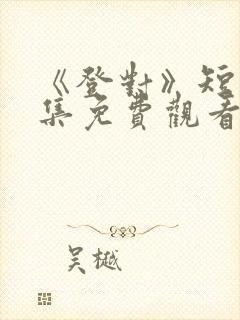 《登對》短
集免費觀看
吴樾